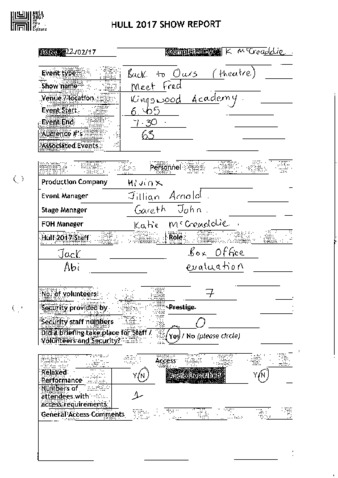 HULL 2017 SHOW REPORT
22/02/17 K McCreaddie
Event type Back to Ours (theatre)
Show name Meet Fred
Venue / location Kingswood Academy
Event Start
Event End 7.30
Audience #'s 63
Associated Events
Personnel
Production Company Hijinx
Event Manager Jillian Arnold
Stage Manager Gareth John
FOH Manager Katie McCreaddie
Hull 2017 Staff Role
Jack Box Office
Abi evaluation
No of volunteers 7
Security provided by Prestige
Security staff numbers 0
Did a briefing take place for Staff / Yes / No (please circle)
Volunteers and Security?
Access
Relaxed Y/N Y/N
Performance
Numbers of 1
attendees with
access requirements
General Access Comments